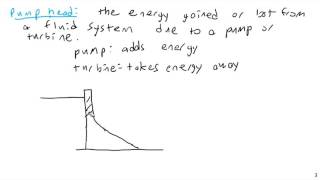 Pump head: the energy gained or lost from
a fluid system due to a pump or
turbine.
pump: adds energy
turbine: takes energy away
3